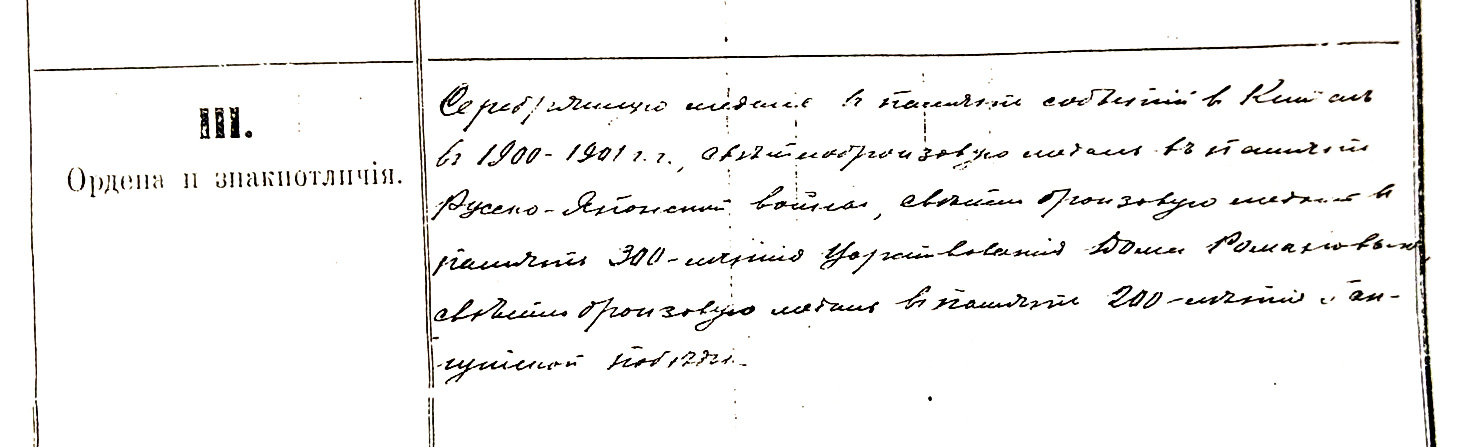 III.
Ордена и знаки отличія.
Серебрянную медаль в память событій в Китаѣ
въ 1900-1901 г.г., свѣтлобронзовую медаль въ память
Русско-Японской войны, свѣтло бронзовую медаль в
память 300-лѣтія Царствованія Дома Романовыхъ,
свѣтло бронзовую медаль въ память 200-лѣтія Ган-
гутской побѣды.